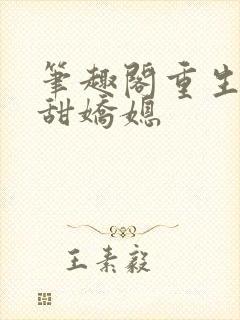 筆趣閣重生
甜嬌媳
王素毅